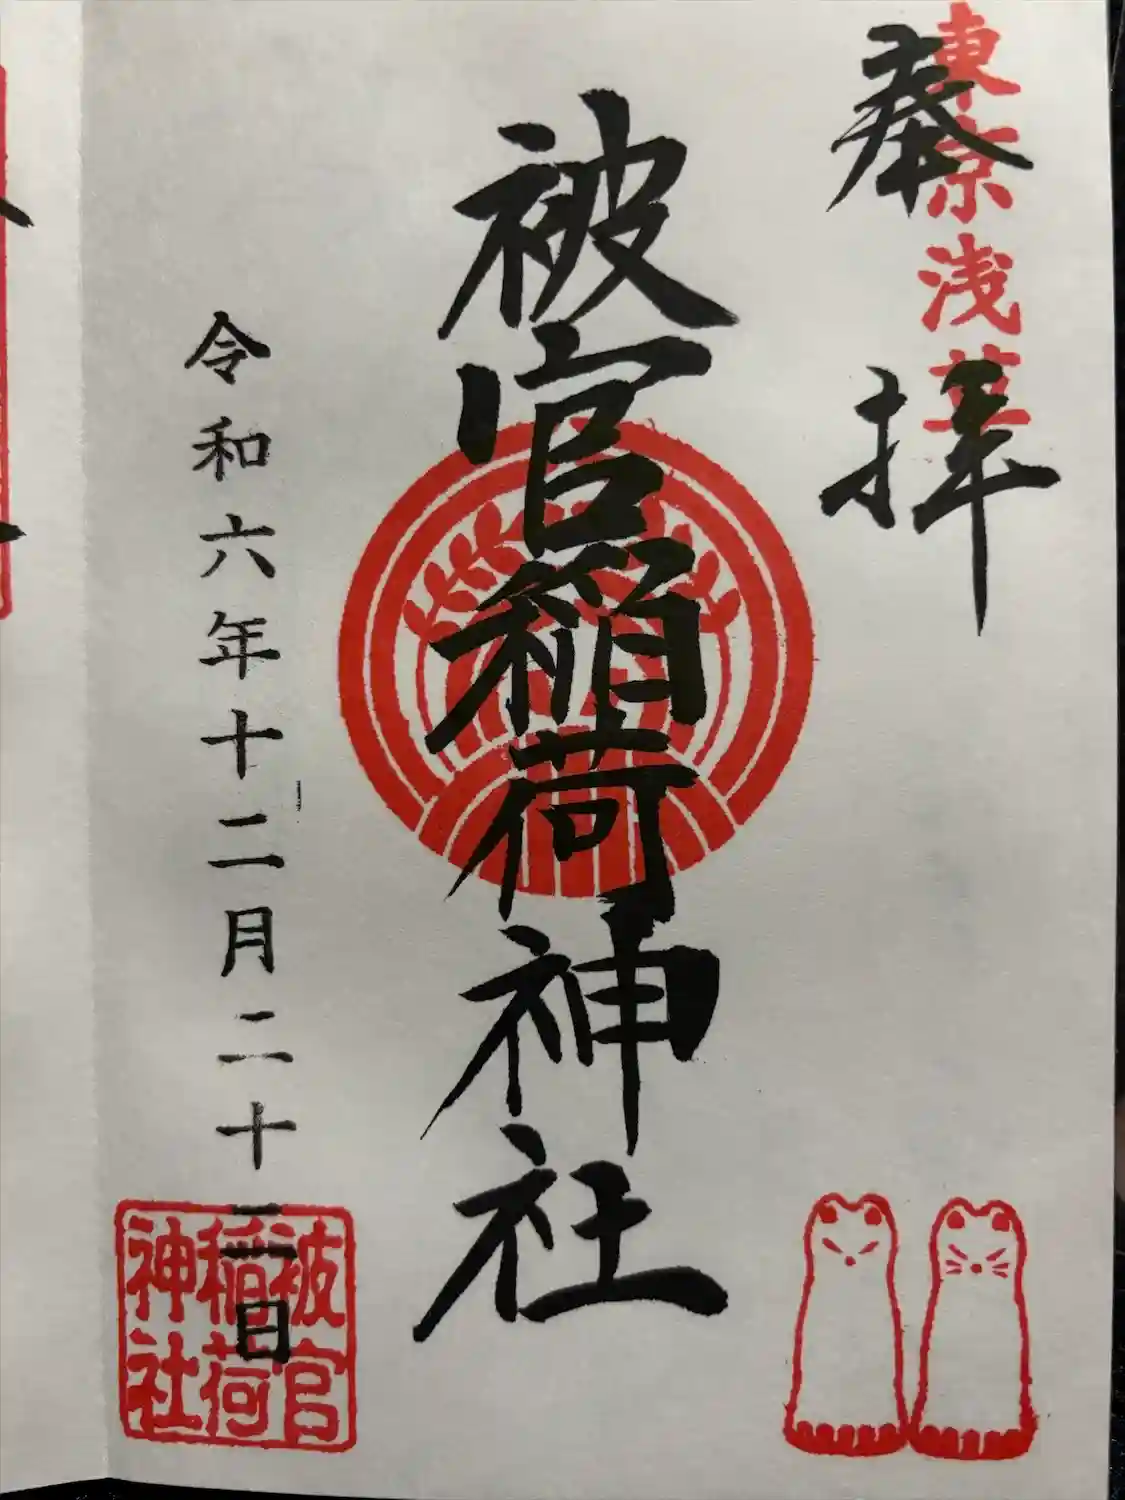 東京浅草
奉拝
被官稲荷神社
令和六年十二月二十二日
被官
稲荷
神社